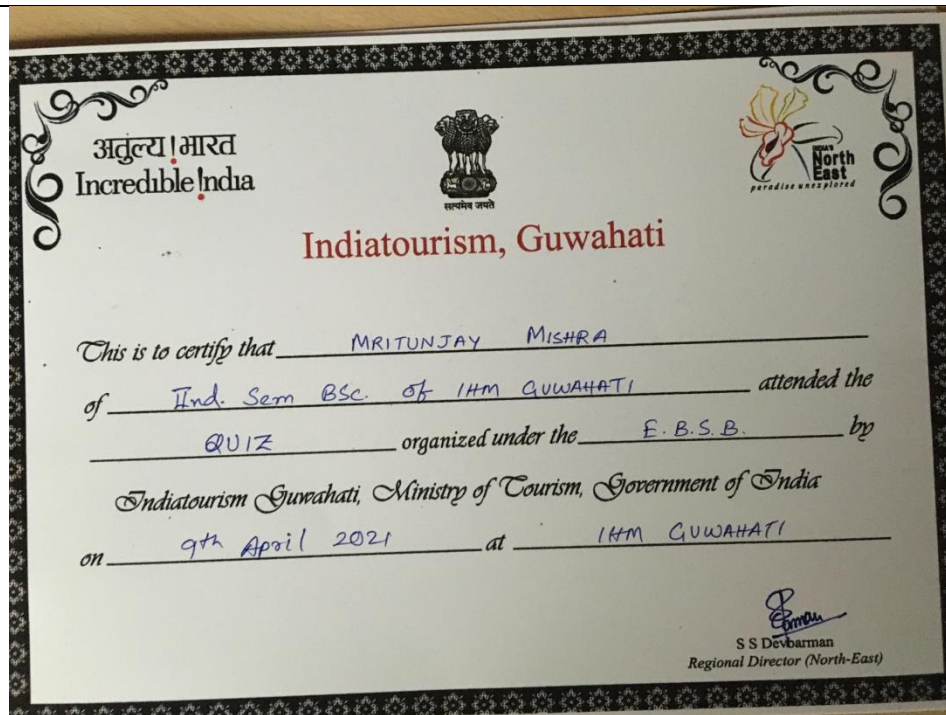 अतुल्य!भारत
Incredible!ndia
सत्यमेव जयते
INDIA'S
North
East
paradise unexplored
Indiatourism, Guwahati
This is to certify that MRITUNJAY MISHRA
of IInd. Sem BSc. of IHM GUWAHATI attended the
QUIZ organized under the E.B.S.B. by
Indiatourism Guwahati, Ministry of Tourism, Government of India
on 9th April 2021 at IHM GUWAHATI
S S Devbarman
Regional Director (North-East)